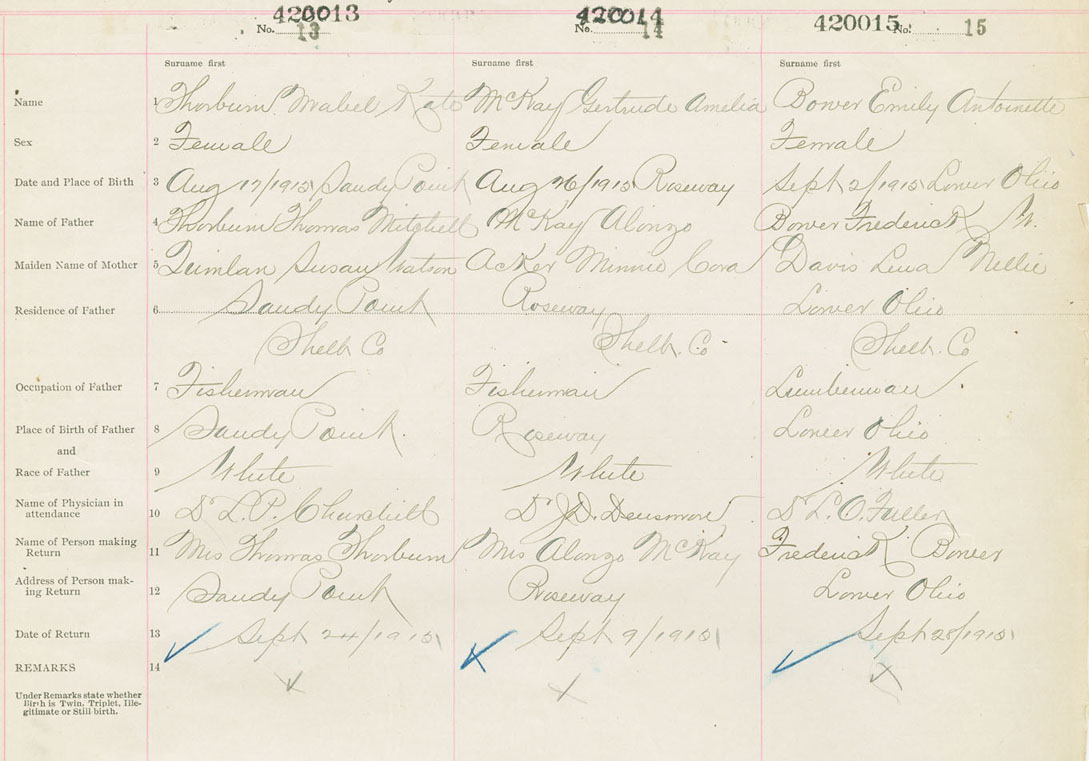 420013 420014 420015
No. 13 No. 14 No. 15
Surname first Surname first Surname first
Name 1 Thorburn Mabel Kate McKay Gertrude Amelia Bower Emily Antoinette
Sex 2 Female Female Female
Date and Place of Birth 3 Aug 17/1915 Sandy Point Aug 26/1915 Roseway Sept 2/1915 Lower Ohio
Name of Father 4 Thorburn Thomas Mitchell McKay Alonzo Bower Frederick W.
Maiden Name of Mother 5 Quinlan Susan Watson Acker Minnie Cora Davis Lena Nellie
Residence of Father 6 Sandy Point Roseway Lower Ohio
Shelb Co Shelb. Co Shelb. Co
Occupation of Father 7 Fisherman Fisherman Lumberman
Place of Birth of Father 8 Sandy Point. Roseway Lower Ohio
and
Race of Father 9 White White White
Name of Physician in
attendance 10 Dr L.P. Churchill Dr J.D. Densmore Dr L.O. Fuller
Name of Person making
Return 11 Mrs Thomas Thorburn Mrs Alonzo McKay Frederick Bower
Address of Person mak-
ing Return 12 Sandy Point Roseway Lower Ohio
Date of Return 13 Sept 24/1915 Sept 9/1915 Sept 28/1915
REMARKS 14
Under Remarks state whether
Birth is Twin, Triplet, Ille-
gitimate or Still birth.